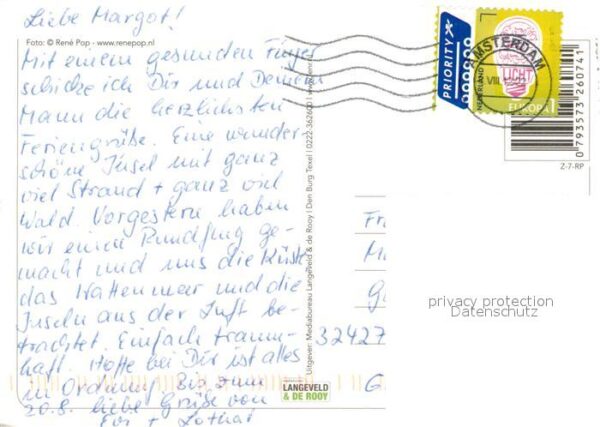 Liebe Margot!
Foto: © René Pop - www.renepop.nl
Mit einem gesunden Finger
schicke ich Dir und Deinem
Mann die herzlichsten
Feriengrüße. Eine wunder
schöne Insel mit ganz
viel Strand + ganz viel
Wald. Vorgestern haben
wir einen Rundflug ge-
macht und uns die Küste
das Wattenmeer und die
Inseln aus der Luft be-
trachtet. Einfach traum-
haft. Hoffe bei Dir ist alles
in Ordnung. Bis zum
20.8. liebe Grüße von
+ Lothar
Uitgever: Mediabureau Langeveld & de Rooy | Den Burg Texel | 0222-362600
LANGEVELD
& DE ROOY
PRIORITY
AMSTERDAM
VIII
NEDERLAND
LICHT
EUROPA 1
0793573260741
Z-7-RP
Fr
M
G
32427
G
privacy protection
Datenschutz